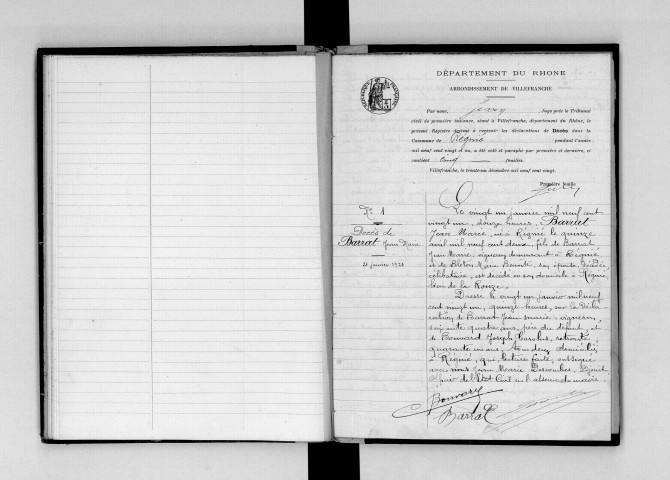 DÉPARTEMENT DU RHONE
ARRONDISSEMENT DE VILLEFRANCHE
Par nous, Juge près le Tribunal
civil de première instance, séant à Villefranche, département du Rhône, le
présent Registre destiné à recevoir les déclarations de Décès dans la
Commune de Régnié pendant l'année
mil neuf cent vingt et un, a été coté et paraphé par première et dernière, et
contient cinq feuilles.
Villefranche, le trentedécembre mil neuf cent vingt.
Première feuille
N° 1
Décès de
Barrat Jean Marie
21 janvier 1921
Le vingt un janvier mil neuf cent
vingt un, douze heures, Barrat
Jean Marie, né à Régnié le quinze
avril mil neuf cent deux, fils de Barrat
Jean Marie, vigneron demeurant à Régnié
et de Marie Benoîte, son épouse, décédée,
célibataire, est décédé en son domicile à Régnié,
lieu de la Ronze.
Dressé le vingt un janvier mil neuf
cent vingt un, quinze heures, sur la décla-
ration de Barrat Jean Marie, vigneron,
soixante quatre ans, père du défunt, et
de Joseph, retraité,
quarante un ans, tous deux domiciliés
à Régnié, qui, lecture faite, ont signé
avec nous Jean Marie Descombes, Adjoint
officier de l'Etat Civil en l'absence du maire
Barrat